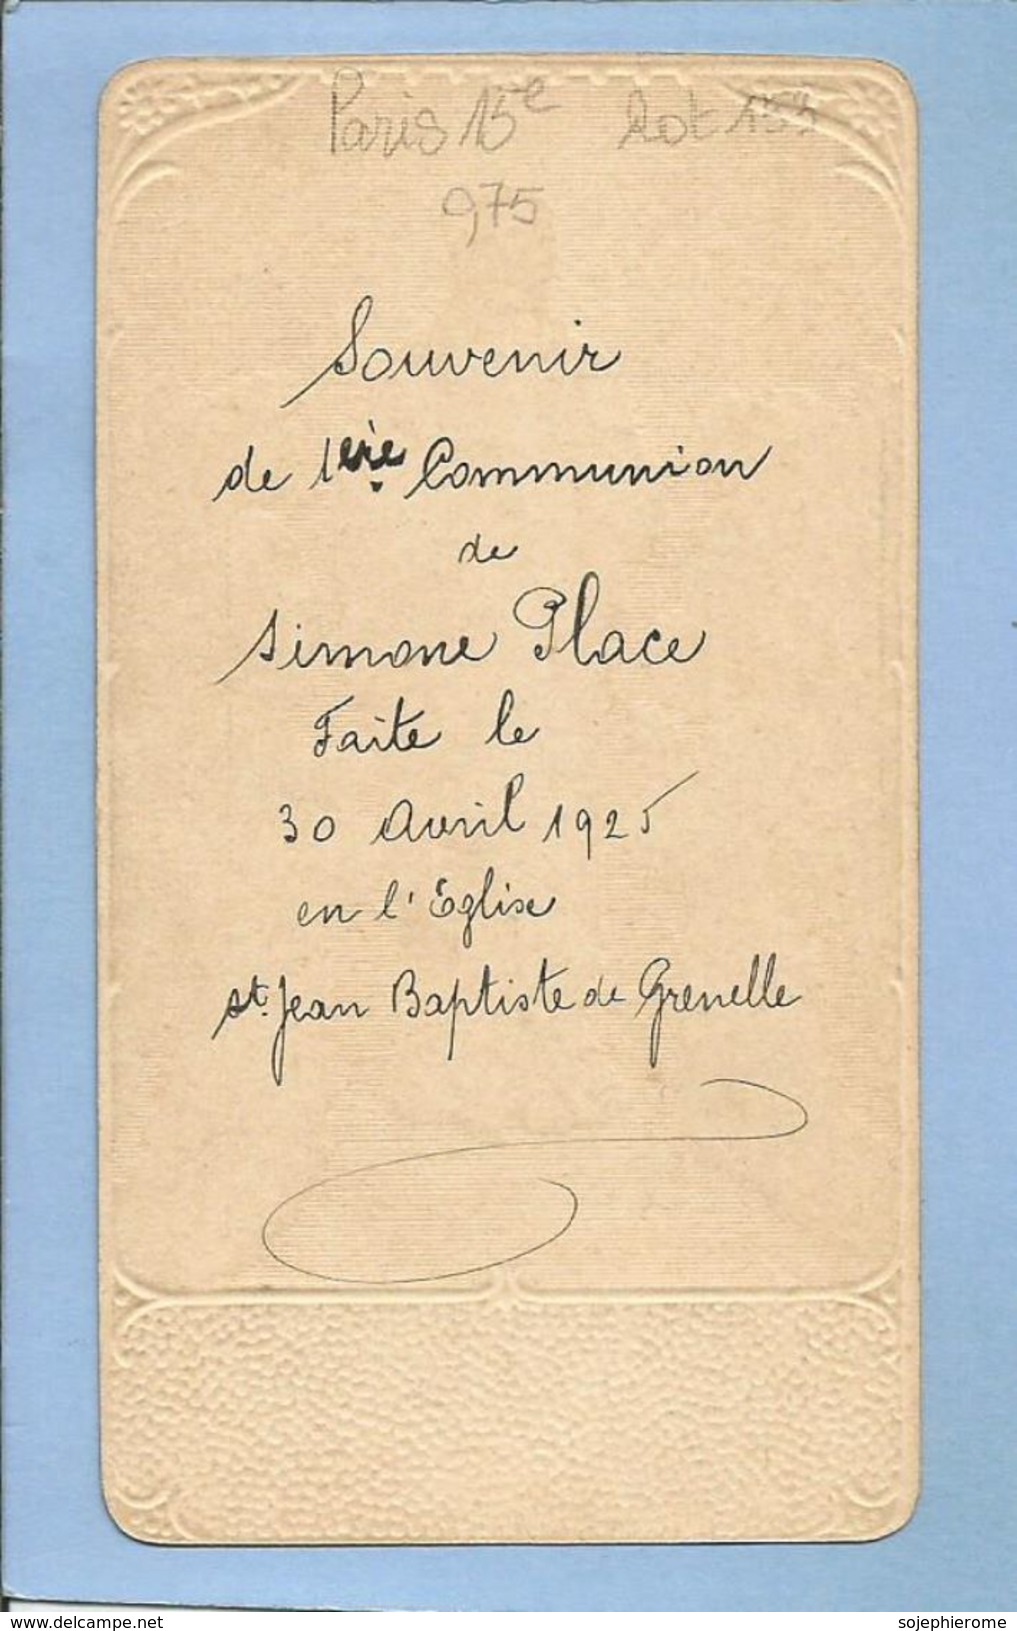 Paris 15e Lot 153
0,75
Souvenir
de 1ère Communion
de
Simone Place
Faite le
30 Avril 1925
en l'Eglise
St. Jean Baptiste de Grenelle
www.delcampe.net
sojephierome